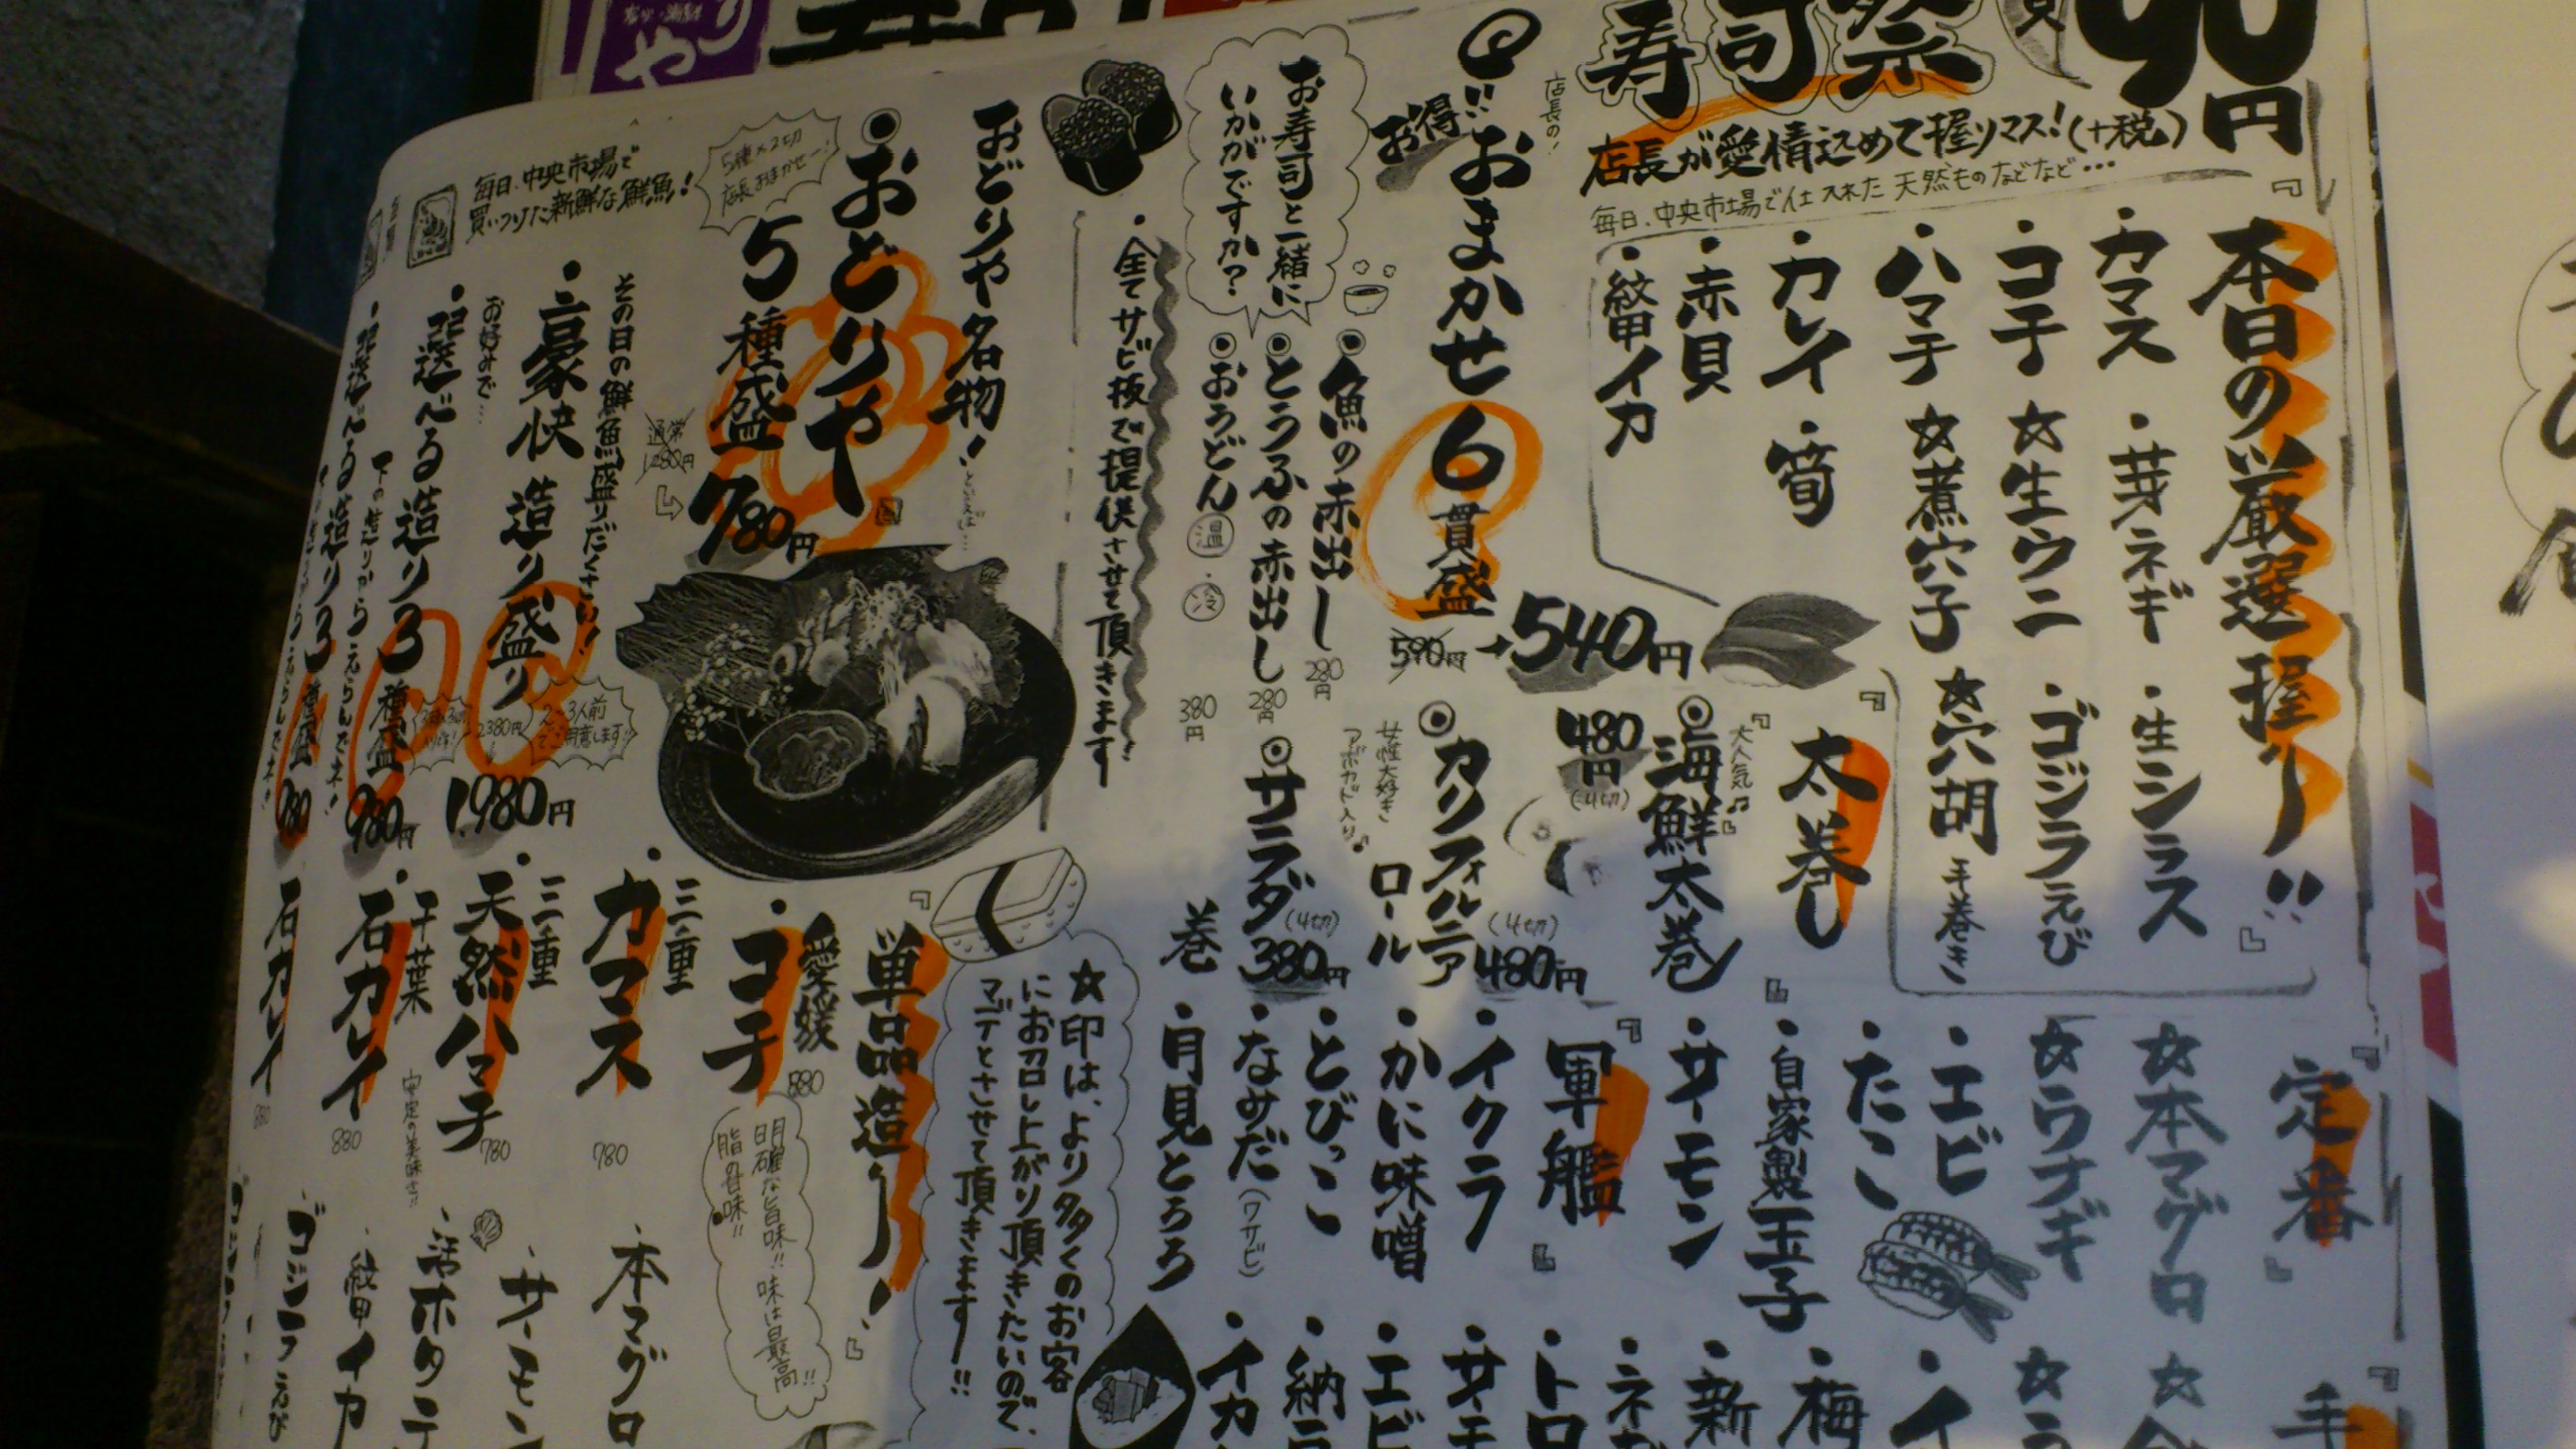 寿司祭
90円
店長が愛情込めて握リマス!(+税)
毎日、中央市場で仕入れた天然ものなどなど…
『本日の厳選握り!!』
・カマス
・芽ネギ
・生シラス
・コチ
☆生ウニ
・ゴジラえび
・ハマチ
☆煮穴子
☆穴胡手巻き
・カレイ
・筍
・赤貝
・紋甲イカ
店長の!
お得!!
おまかせ6貫盛
590円→540円
お寿司と一緒に
いかがですか?
◎魚の赤出し
280円
◎とうふの赤出し
280円
◎おうどん
温・冷
380円
・全てサビ抜で提供させて頂きます!
『太巻し』
『大人気♪』
◎海鮮太巻
480円
(4切)
◎カリフォルニアロール
(4切)
480円
女性大好き
アボカド入り♪
◎サラダ巻
(4切)
380円
『定番』
☆本マグロ
☆ウナギ
・エビ
・たこ
・自家製玉子
・サーモン
『軍艦』
・イクラ
・かに味噌
・とびっこ
・なみだ(ワサビ)
・月見とろろ
・梅
・新
・トロ
・エビ
・イカ
☆印は、より多くのお客
にお召し上がり頂きたいので、
マデとさせて頂きます!!
おどりや名物!
といえば…
◎おどりや
5種盛
通常1280円
780円
5種×2切
店長おまかせー!
毎日、中央市場で
買いつけた新鮮な鮮魚!
その日の鮮魚盛りだくさん!
・豪快造り盛り
2~3人前
でご用意します!!
2380円
1980円
お好みで…
・選べる造り3種盛
下の造りからえらんでネ!
980円
・選べる造り3種盛
980
『単品造り!』
愛媛
・コチ
880
明確な旨味!!味は最高!!
脂の旨味!!
三重
・カマス
780
三重
・天然ハマチ
780
安定の美味さ!!
千葉
・石カレイ
880
石カレイ
880
・本マグロ
・サーモン
・活ホタテ
・紋甲イカ
ゴジラえび